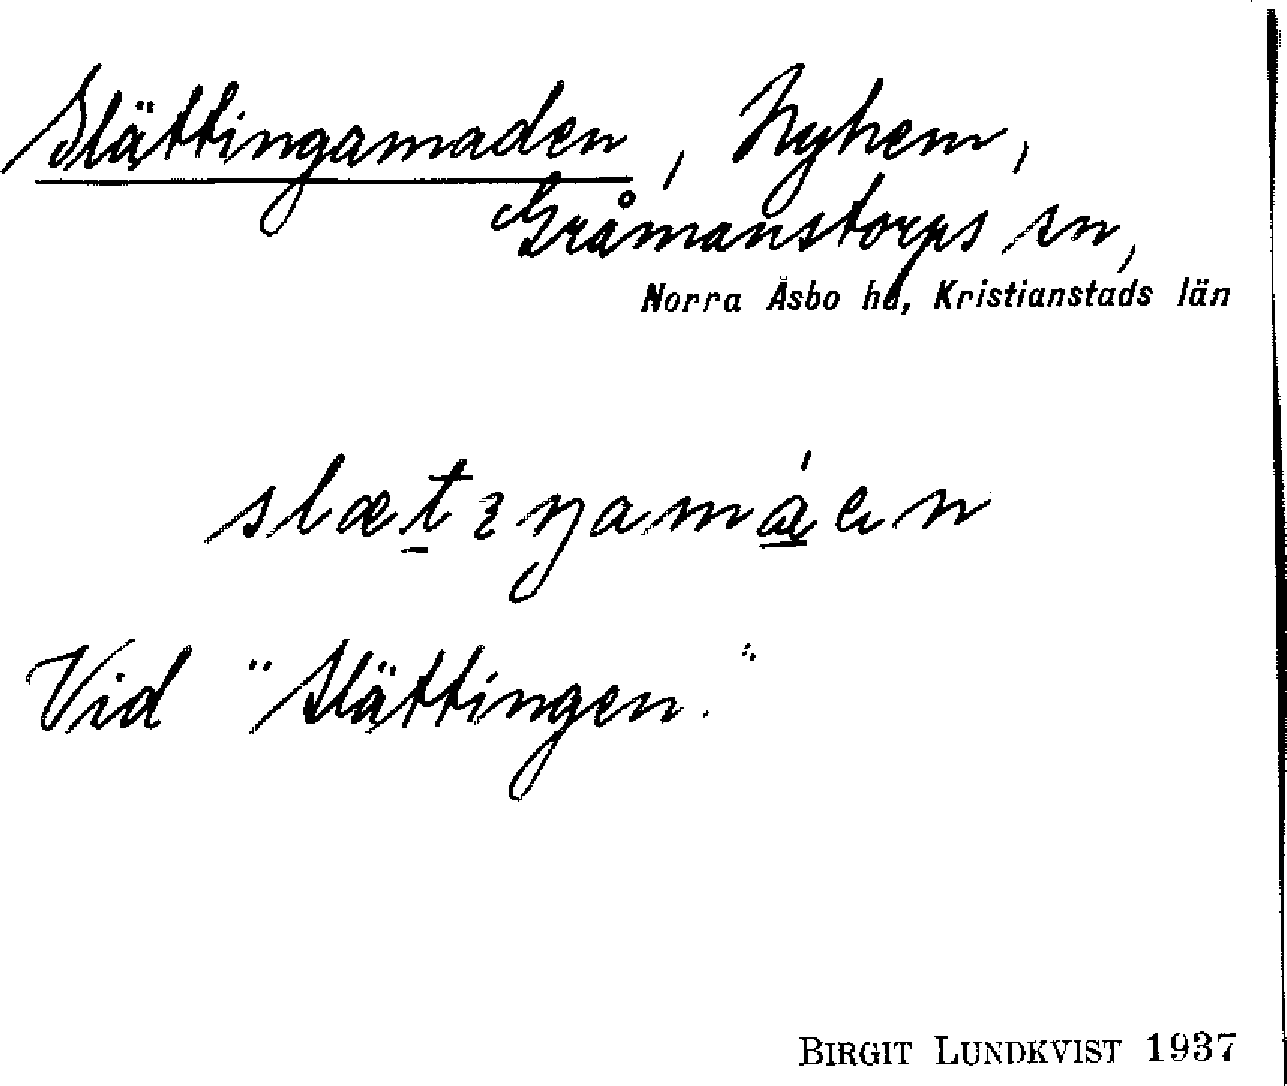 Slättingamaden, Nyhem,
Gråmanstorps sn,
Norra Åsbo hd, Kristianstads län
Vid "Slättingen."
BIRGIT LUNDKVIST 1937